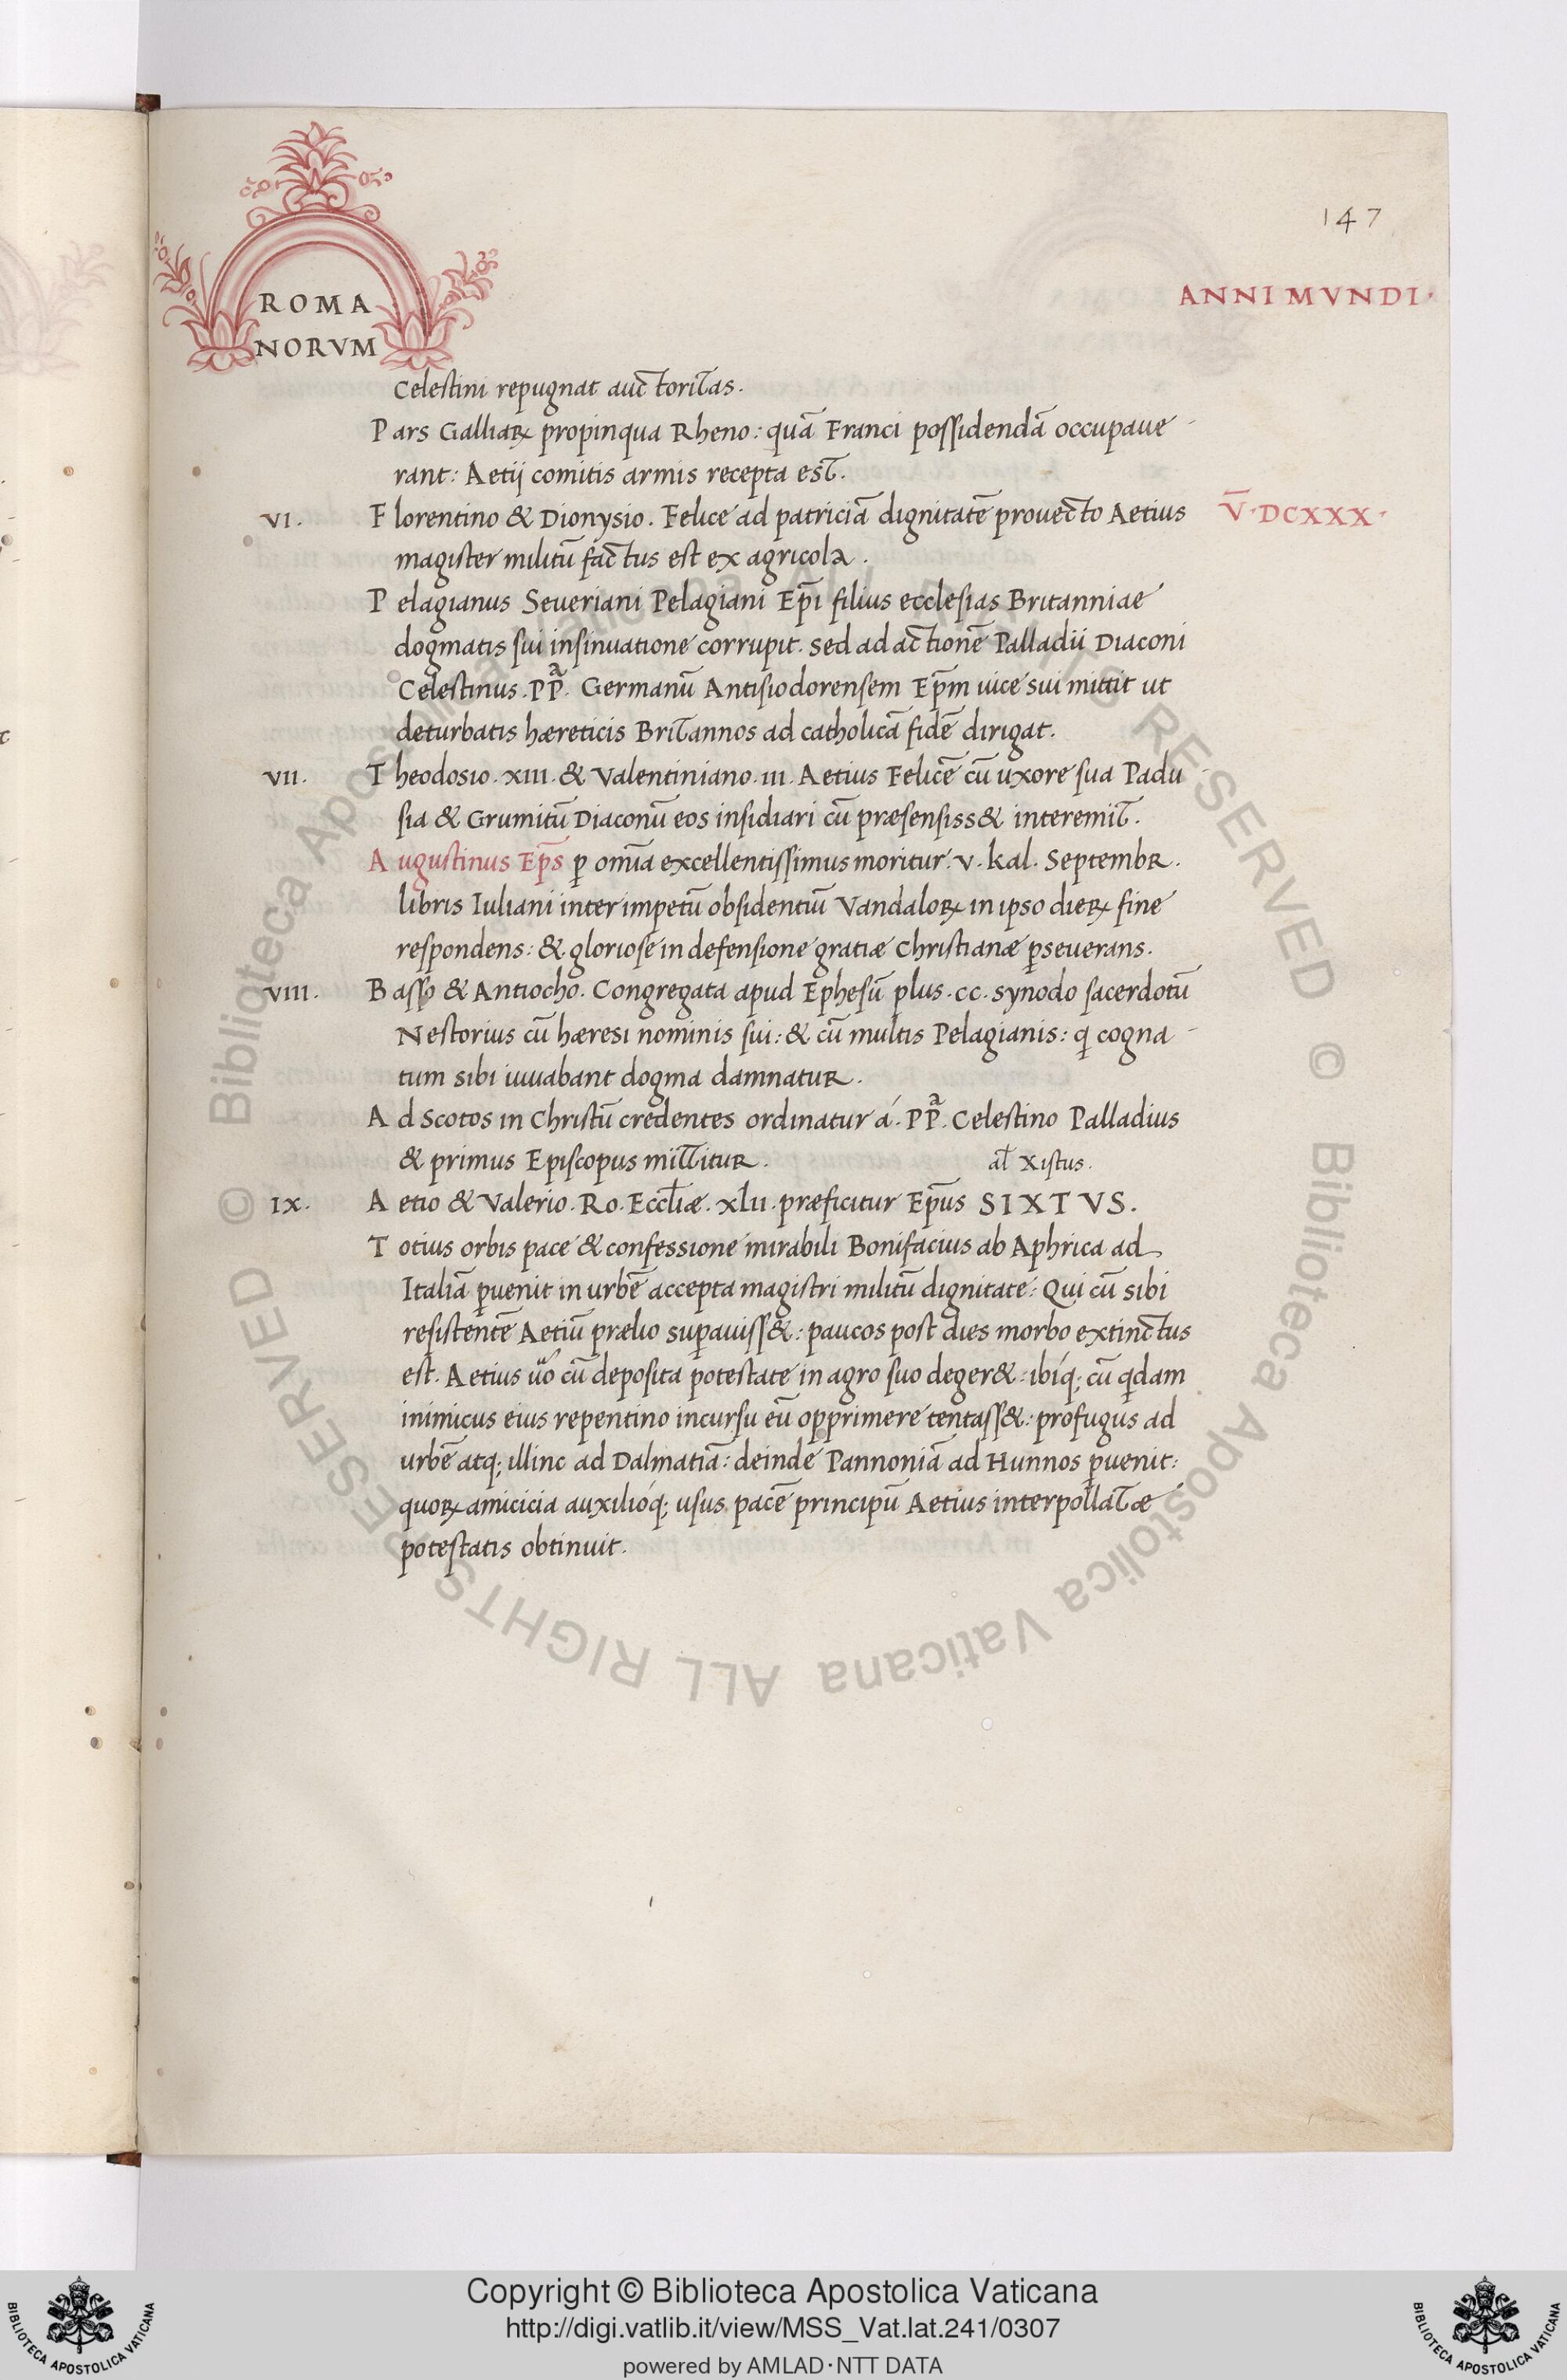 147
ROMA
NORVM
ANNI MVNDI·
Celestini repugnat auctoritas.
Pars Galliaꝝ propinqua Rheno: quā Franci possidendā occupaue-
rant: Aetij comitis armis recepta est.
VI. Florentino & Dionysio. Felice ad patriciā dignitatē prouecto Aetius V̅·DCXXX·
magister militū factus est ex agricola.
Pelagianus Seueriani Pelagiani Ep̄i filius ecclesias Britanniae
dogmatis sui insinuatione corrupit. sed ad actionē Palladii Diaconi
Celestinus .PP̄ͣ. Germanū Antisiodorensem Ep̄m uice sui mittit ut
deturbatis hæreticis Britannos ad catholicā fidē dirigat.
VII. Theodosio .XIII. & Valentiniano .III. Aetius Felicē cū uxore sua Padu-
sia & Grumitū Diaconū eos insidiari cū præsensiss& interemit.
Augustinus Ep̄s ꝑ om̄ia excellentissimus moritur .V. kal. Septembr.
libris Iuliani inter impetū obsidentiū Vandaloꝝ in ipso dieꝝ fine
respondens: & gloriose in defensione gratiæ Christianæ ꝑseuerans.
VIII. Basso & Antiocho. Congregata apud Ephesū plus .cc. synodo sacerdotū
Nestorius cū hæresi nominis sui: & cū multis Pelagianis: q̣ cogna-
tum sibi iuuabant dogma damnatur.
Ad Scotos in Christū credentes ordinatur á .PP̄ͣ. Celestino Palladius
& primus Episcopus mittitur.
al̄ Xistus.
IX. Aetio & Valerio. Ro. Eccl̄iæ .xlii. præficitur Ep̄us SIXTVS.
Totius orbis pace & confessione mirabili Bonifacius ab Aphrica ad
Italiā ꝑuenit in urbē accepta magistri militū dignitate: Qui cū sibi
resistentē Aetiū prælio suꝑauiss&: paucos post dies morbo extinctus
est. Aetius ūo cū deposita potestate in agro suo deger&: ibíq; cū qdam
inimicus eius repentino incursu eū opprimere tentass&: profugus ad
urbē atq; illinc ad Dalmatiā: deinde Pannoniā ad Hunnos ꝑuenit:
quoꝝ amicicia auxilióq; usus pacē principū Aetius interpollatæ
potestatis obtinuit.
© Biblioteca Apostolica Vaticana ALL RIGHTS RESERVED © Biblioteca Apostolica Vaticana ALL RIGHTS RESERVED
BIBLIOTECA APOSTOLICA VATICANA
Copyright © Biblioteca Apostolica Vaticana
http://digi.vatlib.it/view/MSS_Vat.lat.241/0307
powered by AMLAD·NTT DATA
BIBLIOTECA APOSTOLICA VATICANA